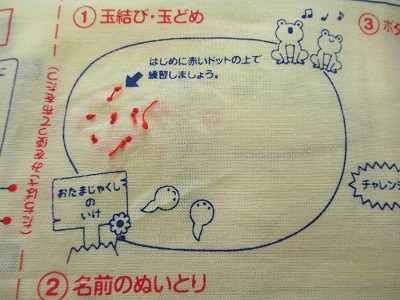 ① 玉結び・玉どめ
はじめに赤いドットの上で
練習しましょう。
③ ボタ
おたまじゃくし
の
いけ
チャレンジ
② 名前のぬいとり